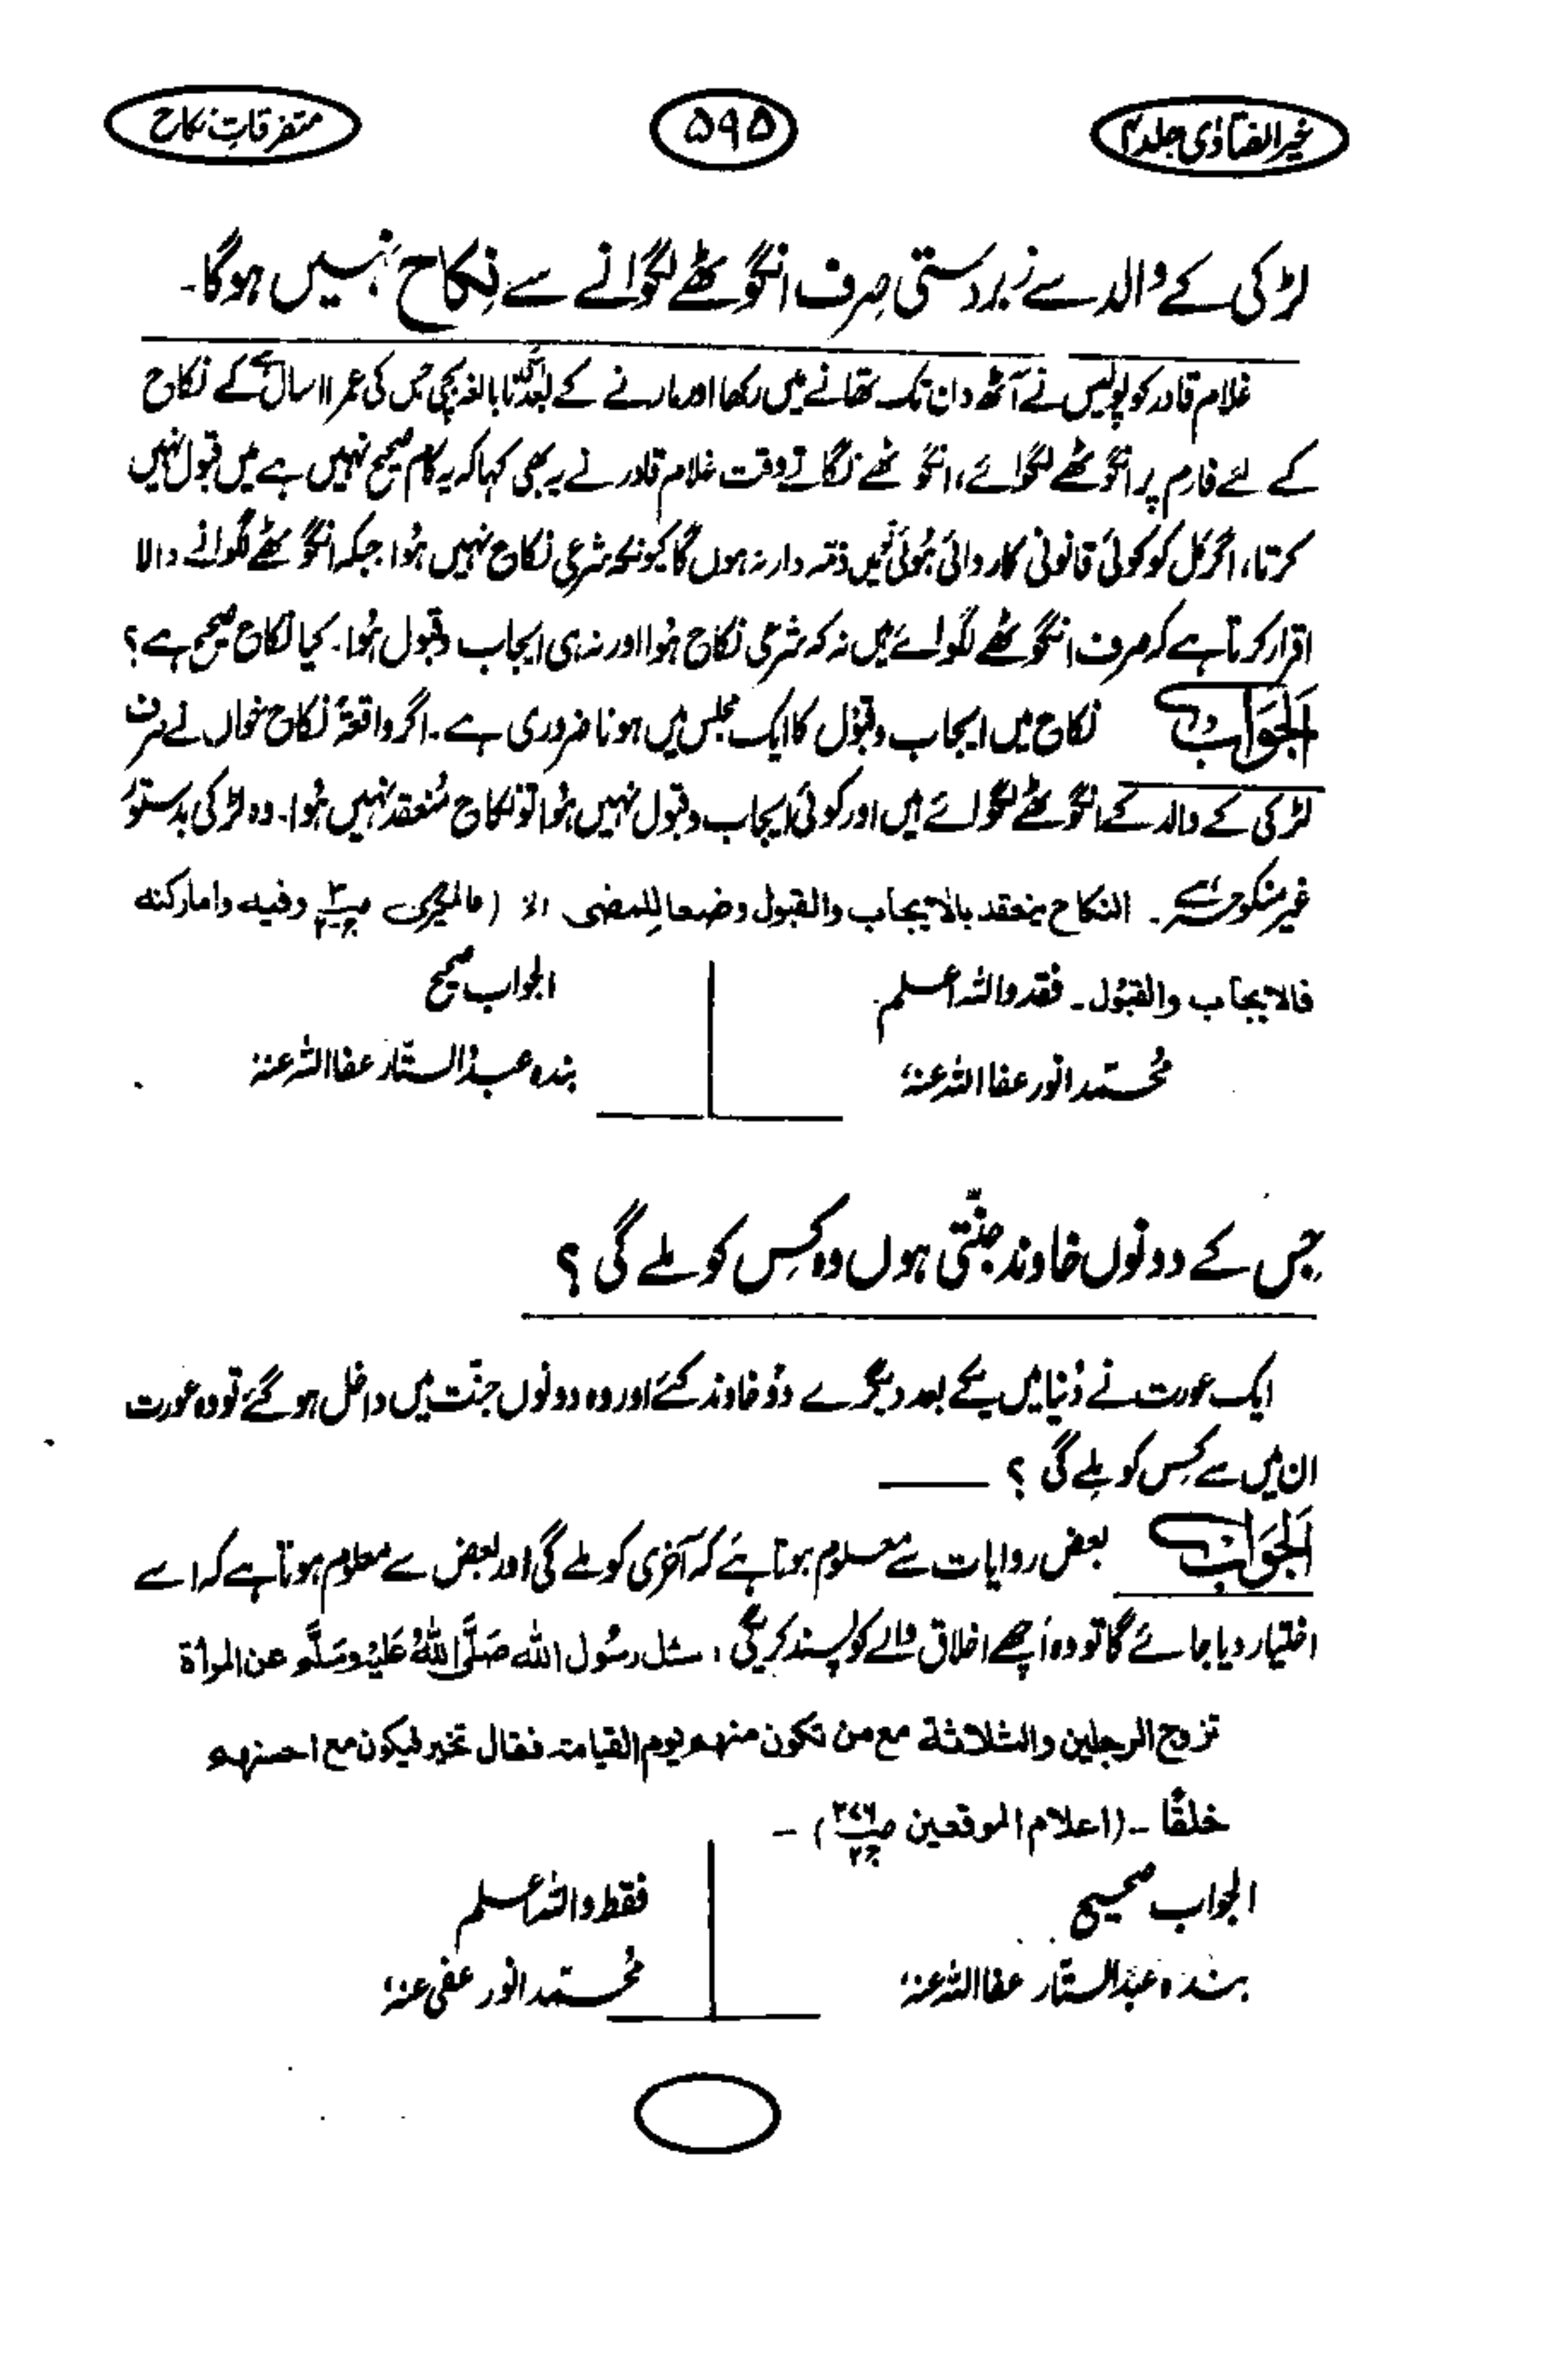 خیر الفتاویٰ جلد ۴
۵۹۵
متفرقاتِ نکاح
لڑکی کے والد سے زبردستی صرف انگوٹھے لگوانے سے نِکاح نہیں ہوگا۔
غلام قادر کو پولیس نے آٹھ دن تک تھانے میں رکھا اور مارنے کے بعد نابالغہ بچی جس کی عمر ۱۱ سال ہے کے نکاح
کے لئے فارم پر انگوٹھے لگوائے، انگوٹھے لگاتے وقت غلام قادر نے یہ بھی کہا کہ یہ کام صحیح نہیں ہے میں قبول نہیں
کرتا، اگر کل کو کوئی قانونی کاروائی ہوئی میں ذمہ دار نہ ہوں گا کیونکہ شرعی نکاح نہیں ہُوا جبکہ انگوٹھے لگوانے والا
اقرار کرتا ہے کہ صرف انگوٹھے لگوائے ہیں نہ کہ شرعی نکاح ہُوا اور نہ ہی ایجاب و قبول ہُوا۔ کیا نکاح صحیح ہے؟
اَلجَوَاب نکاح میں ایجاب و قبول کا ایک مجلس میں ہونا ضروری ہے۔ اگر واقعۃً نکاح خواں نے صرف
لڑکی کے والد کے انگوٹھے لگوائے ہیں اور کوئی ایجاب و قبول نہیں ہُوا تو نکاح مُنعقد نہیں ہُوا۔ وہ لڑکی بدستور
غیر منکوحہ ہے۔ النکاح ینعقد بالایجاب والقبول وضعا للمضی الخ (عالمگیری وفیه واما رکنه
فالایجاب والقبول۔ فقط واللہ اعلم
الجواب صحیح
محمد انور عفا اللہ عنہ
بندہ عبد الستار عفا اللہ عنہ
جِس کے دونوں خاوند جنّتی ہوں وہ کِس کو ملے گی؟
ایک عورت نے دُنیا میں یکے بعد دیگرے دو خاوند کئے اور وہ دونوں جنّت میں داخل ہو گئے تو وہ عورت
ان میں سے کِس کو ملے گی؟
اَلجَوَاب بعض روایات سے معلوم ہوتا ہے کہ آخری کو ملے گی اور بعض سے معلوم ہوتا ہے کہ اسے
اختیار دیا جائے گا تو وہ اَچھے اخلاق والے کو پسند کریگی، سئل رسُول اللہ صَلَّى اللهُ عَلَيْهِ وَسَلَّم عن المرأة
تزوج الرجلین والثلاثة مع من تکون منهم یوم القیامة فقال تخیر فیکون مع احسنهم
خلقًا ۔ (اعلام الموقعین ص ۳۷۶ ج ۲) ۔
الجواب صحیح
فقط واللہ اعلم
بندہ عبد الستار عفا اللہ عنہ
محمد انور عفی عنہ